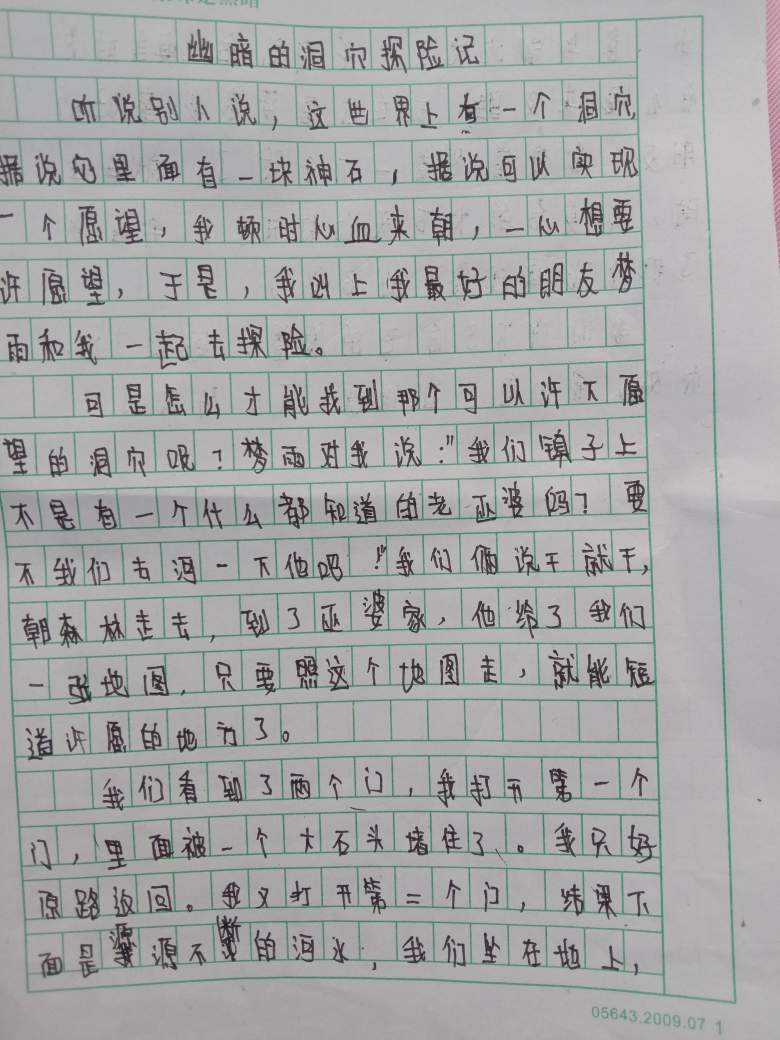 幽暗的洞穴探险记
听说别人说，这世界上有一个洞穴
据说它里面有一块神石，据说可以实现
一个愿望，我顿时心血来朝，一心想要
许愿望，于是，我叫上我最好的朋友梦
雨和我一起去探险。
可是怎么才能找到那个可以许下愿
望的洞穴呢？梦雨对我说："我们镇子上
不是有一个什么都知道的老巫婆吗？要
不我们去问一下他吧！"我们俩说干就干，
朝森林走去，到了巫婆家，他给了我们
一张地图，只要照这个地图走，就能
道许愿的地方了。
我们看到了两个门，我打开第一个
门，里面被一个大石头堵住了。我只好
原路返回。我又打开第二个门，结果下
面是源源不断的河水，我们坐在地上，
05643.2009.07 1